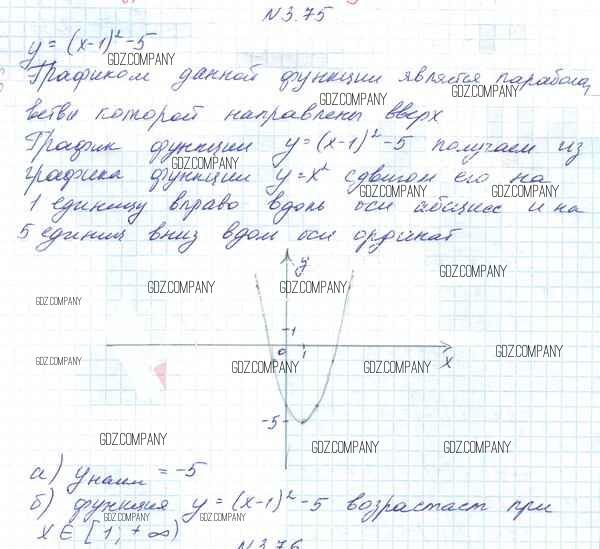 №3.75
y = (x-1)² - 5
GDZ.COMPANY
Графиком данной функции является парабола,
GDZ.COMPANY GDZ.COMPANY
ветви которой направлены вверх
График функции y = (x-1)² - 5 получаем из
GDZ.COMPANY
графика функции y = x² сдвигом его на
GDZ.COMPANY GDZ.COMPANY
1 единицу вправо вдоль оси абсцисс и на
5 единиц вниз вдоль оси ординат
y
GDZ.COMPANY
GDZ.COMPANY GDZ.COMPANY
GDZ.COMPANY
1
0 1 x
GDZ.COMPANY
GDZ.COMPANY GDZ.COMPANY GDZ.COMPANY
-5
GDZ.COMPANY
GDZ.COMPANY GDZ.COMPANY
а) y наим = -5
б) функция y = (x-1)² - 5 возрастает при
GDZ.COMPANY GDZ.COMPANY
x ∈ [1; +∞)
№3.76